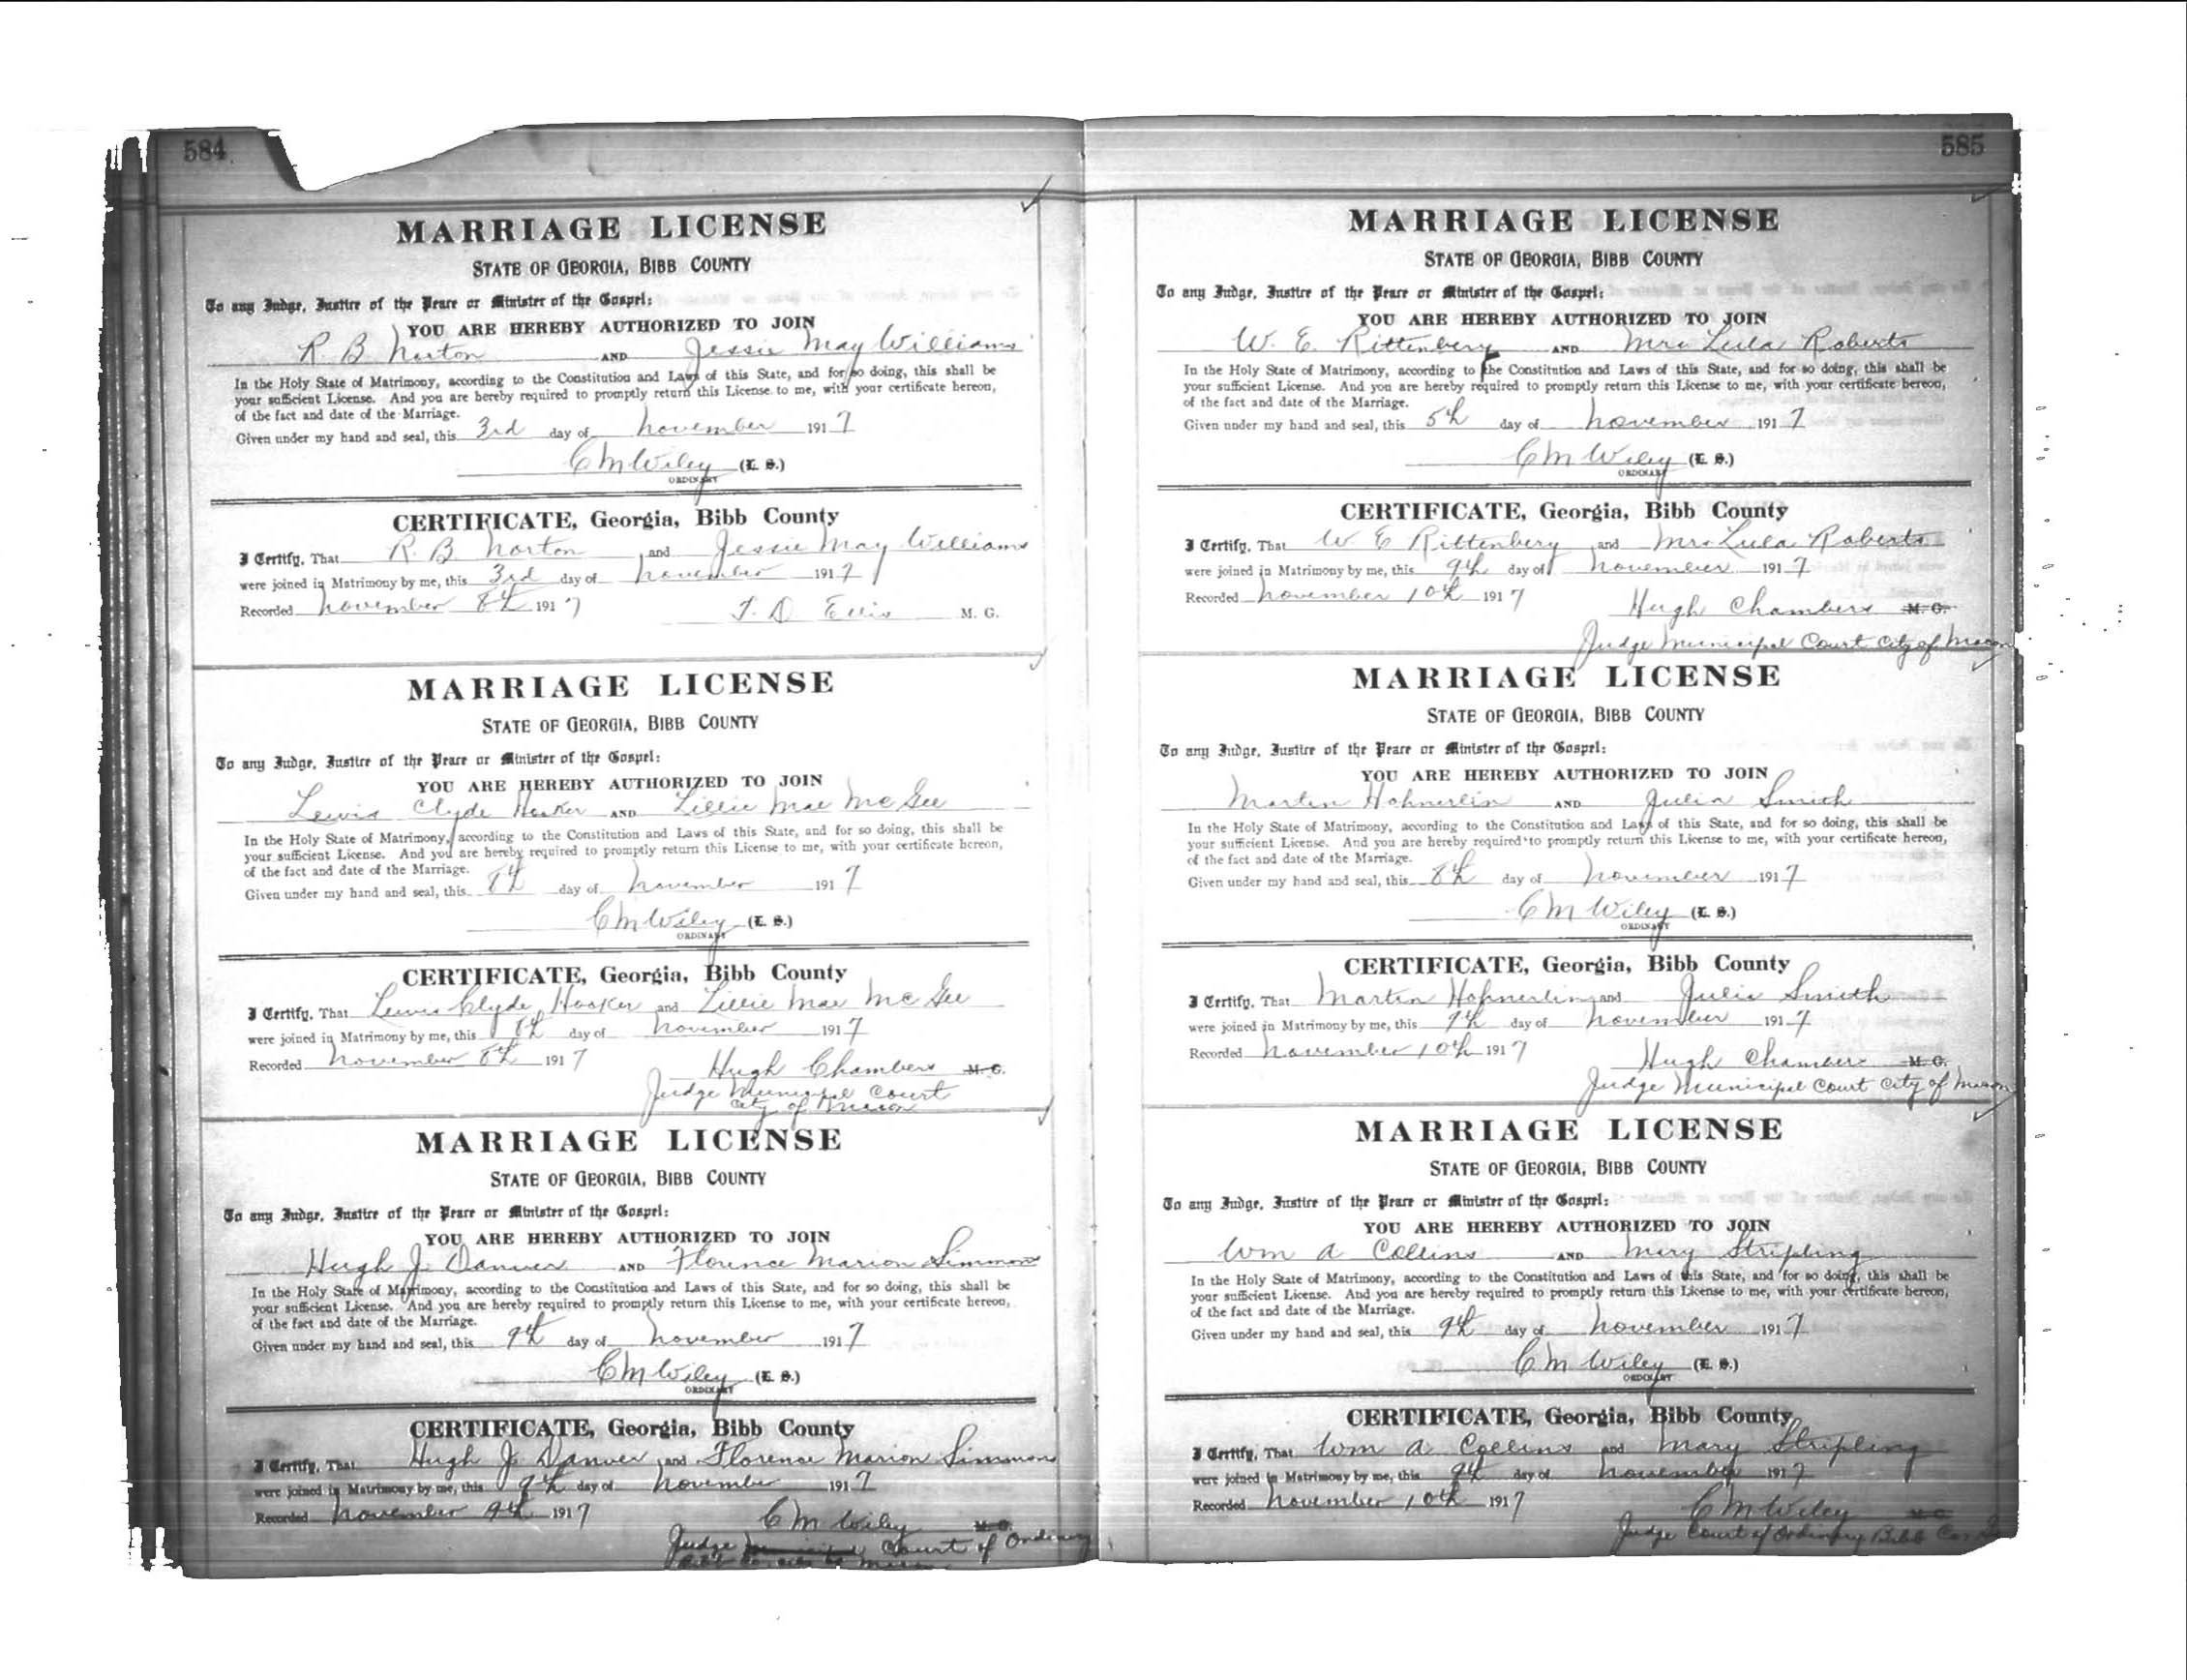 584
MARRIAGE LICENSE
STATE OF GEORGIA, BIBB COUNTY
To any Judge, Justice of the Peace or Minister of the Gospel:
YOU ARE HEREBY AUTHORIZED TO JOIN
R. B. Norton AND Jessie May Williams
In the Holy State of Matrimony, according to the Constitution and Laws of this State, and for so doing, this shall be
your sufficient License. And you are hereby required to promptly return this License to me, with your certificate hereon,
of the fact and date of the Marriage.
Given under my hand and seal, this 3rd day of November 1917
C M Wiley (L. S.)
ORDINARY
CERTIFICATE, Georgia, Bibb County
I Certify, That R. B Norton and Jessie May Williams
were joined in Matrimony by me, this 3rd day of November 1917
Recorded November 8th 1917
T. D Ellis M. G.
MARRIAGE LICENSE
STATE OF GEORGIA, BIBB COUNTY
To any Judge, Justice of the Peace or Minister of the Gospel:
YOU ARE HEREBY AUTHORIZED TO JOIN
Lewis Clyde Hooker AND Lillie Mae McGee
In the Holy State of Matrimony, according to the Constitution and Laws of this State, and for so doing, this shall be
your sufficient License. And you are hereby required to promptly return this License to me, with your certificate hereon,
of the fact and date of the Marriage.
Given under my hand and seal, this 8th day of November 1917
C M Wiley (L. S.)
ORDINARY
CERTIFICATE, Georgia, Bibb County
I Certify, That Lewis Clyde Hooker and Lillie Mae McGee
were joined in Matrimony by me, this 8th day of November 1917
Recorded November 8th 1917
Hugh Chambers M. G.
Judge Municipal Court
City of Macon
MARRIAGE LICENSE
STATE OF GEORGIA, BIBB COUNTY
To any Judge, Justice of the Peace or Minister of the Gospel:
YOU ARE HEREBY AUTHORIZED TO JOIN
Hugh J. Danver AND Florence Marion Simmons
In the Holy State of Matrimony, according to the Constitution and Laws of this State, and for so doing, this shall be
your sufficient License. And you are hereby required to promptly return this License to me, with your certificate hereon,
of the fact and date of the Marriage.
Given under my hand and seal, this 9th day of November 1917
C M Wiley (L. S.)
ORDINARY
CERTIFICATE, Georgia, Bibb County
I Certify, That Hugh J. Danver and Florence Marion Simmons
were joined in Matrimony by me, this 9th day of November 1917
Recorded November 9th 1917
C M Wiley M. G.
Judge Municipal Court of Ordinary
585
MARRIAGE LICENSE
STATE OF GEORGIA, BIBB COUNTY
To any Judge, Justice of the Peace or Minister of the Gospel:
YOU ARE HEREBY AUTHORIZED TO JOIN
W. E. Rittenberg AND Mrs Lula Roberts
In the Holy State of Matrimony, according to the Constitution and Laws of this State, and for so doing, this shall be
your sufficient License. And you are hereby required to promptly return this License to me, with your certificate hereon,
of the fact and date of the Marriage.
Given under my hand and seal, this 5th day of November 1917
C M Wiley (L. S.)
ORDINARY
CERTIFICATE, Georgia, Bibb County
I Certify, That W E Rittenberg and Mrs Lula Roberts
were joined in Matrimony by me, this 9th day of November 1917
Recorded November 10th 1917
Hugh Chambers M. G.
Judge Municipal Court City of Macon
MARRIAGE LICENSE
STATE OF GEORGIA, BIBB COUNTY
To any Judge, Justice of the Peace or Minister of the Gospel:
YOU ARE HEREBY AUTHORIZED TO JOIN
Martin Hohnerlin AND Julia Smith
In the Holy State of Matrimony, according to the Constitution and Laws of this State, and for so doing, this shall be
your sufficient License. And you are hereby required to promptly return this License to me, with your certificate hereon,
of the fact and date of the Marriage.
Given under my hand and seal, this 8th day of November 1917
C M Wiley (L. S.)
ORDINARY
CERTIFICATE, Georgia, Bibb County
I Certify, That Martin Hohnerlin and Julia Smith
were joined in Matrimony by me, this 9th day of November 1917
Recorded November 10th 1917
Hugh Chambers M. G.
Judge Municipal Court City of Macon
MARRIAGE LICENSE
STATE OF GEORGIA, BIBB COUNTY
To any Judge, Justice of the Peace or Minister of the Gospel:
YOU ARE HEREBY AUTHORIZED TO JOIN
Wm A Collins AND Mary Stripling
In the Holy State of Matrimony, according to the Constitution and Laws of this State, and for so doing, this shall be
your sufficient License. And you are hereby required to promptly return this License to me, with your certificate hereon,
of the fact and date of the Marriage.
Given under my hand and seal, this 9th day of November 1917
C M Wiley (L. S.)
ORDINARY
CERTIFICATE, Georgia, Bibb County
I Certify, That Wm A Collins and Mary Stripling
were joined in Matrimony by me, this 9th day of November 1917
Recorded November 10th 1917
C M Wiley M G
Judge Court of Ordinary Bibb Co